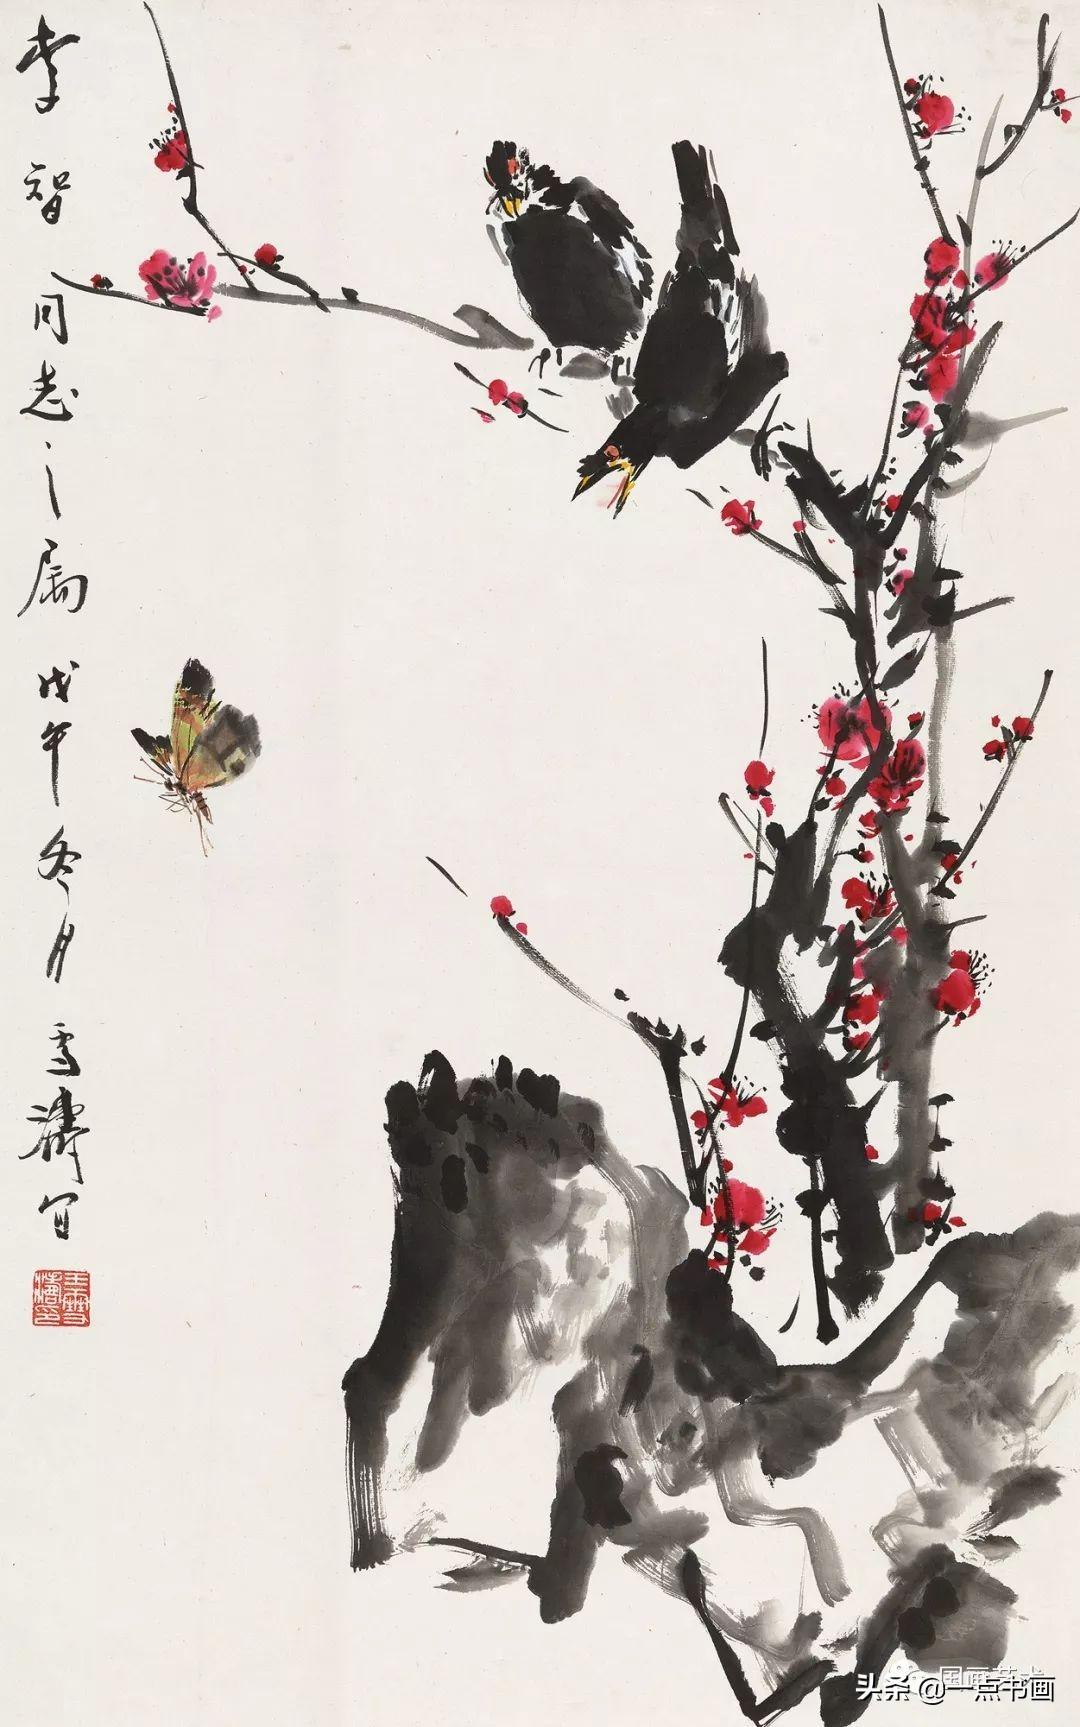 李智同志之属戊午冬月雪涛写
王雪涛印
国画艺术
头条@一点书画